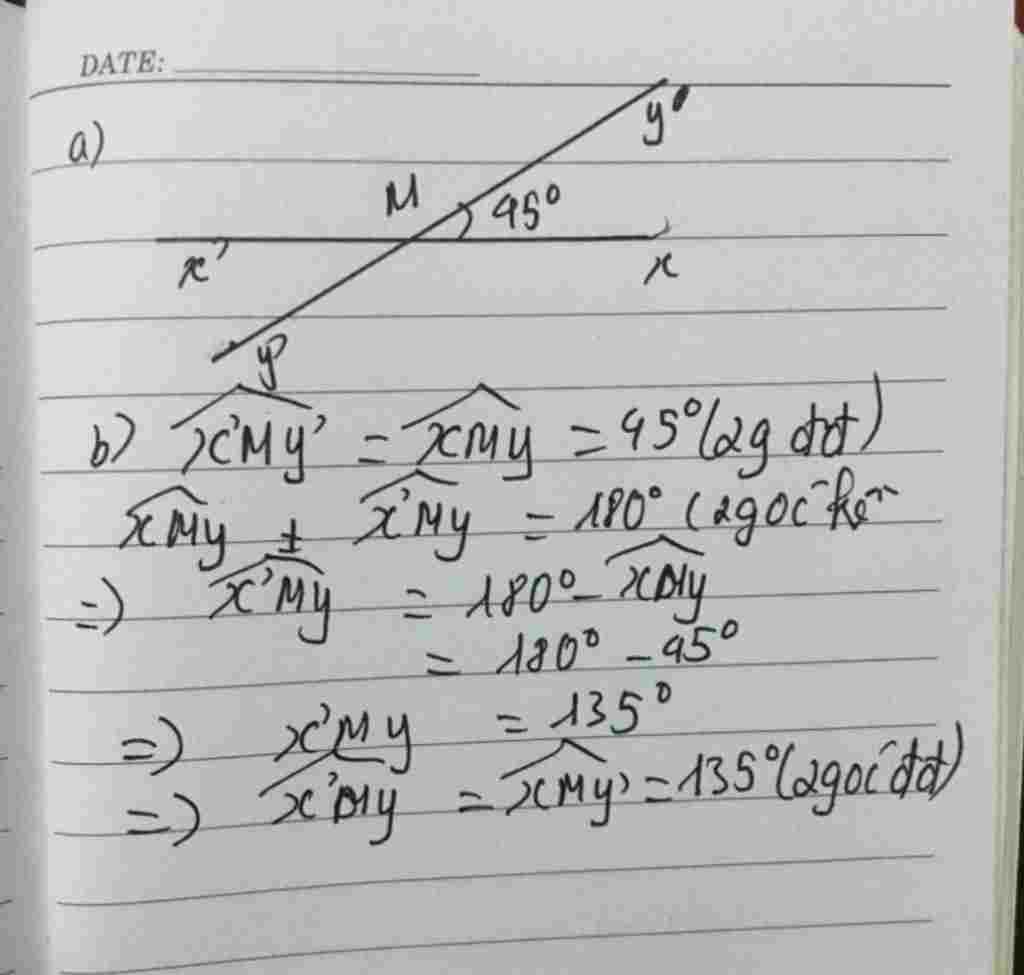 DATE:
a)
y'
M 45°
x' x
y
b) x'My' = xMy = 45° (2g đđ)
xMy + x'My = 180° (2góc kề
=> x'My = 180° - xMy
= 180° - 45°
=> x'My = 135°
=> x'My = xMy' = 135° (2góc đđ)